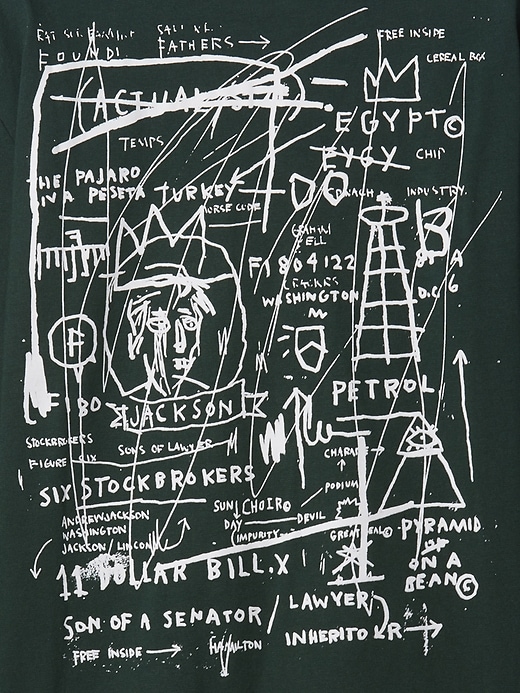 FOUND!
FATHERS
FREE INSIDE
CEREAL BOX
(ACTUAL SIZE)
EGYPT©
EYGY CHIP
TEMPS
THE PAJARO
IN A PESETA
TURKEY
MORSE CODE
SPINACH
INDUSTRY
B
F1804122
WASHINGTON
D.C.
A
6
F
PETROL
F180
JACKSON
STOCKBROKERS
SONS OF LAWYER
FIGURE SIX
CHARADE
SIX STOCKBROKERS
PODIUM
SUN CHOIR©
DAY
DEVIL
(IMPURITY
ANDREWJACKSON
WASHINGTON
JACKSON/LINCOLN
GREAT SEAL©
PYRAMID
OF
ON A
BEAN©
11 DOLLAR BILL.X
SON OF A SENATOR/
LAWYER
INHERITOR
FREE INSIDE
HAMILTON